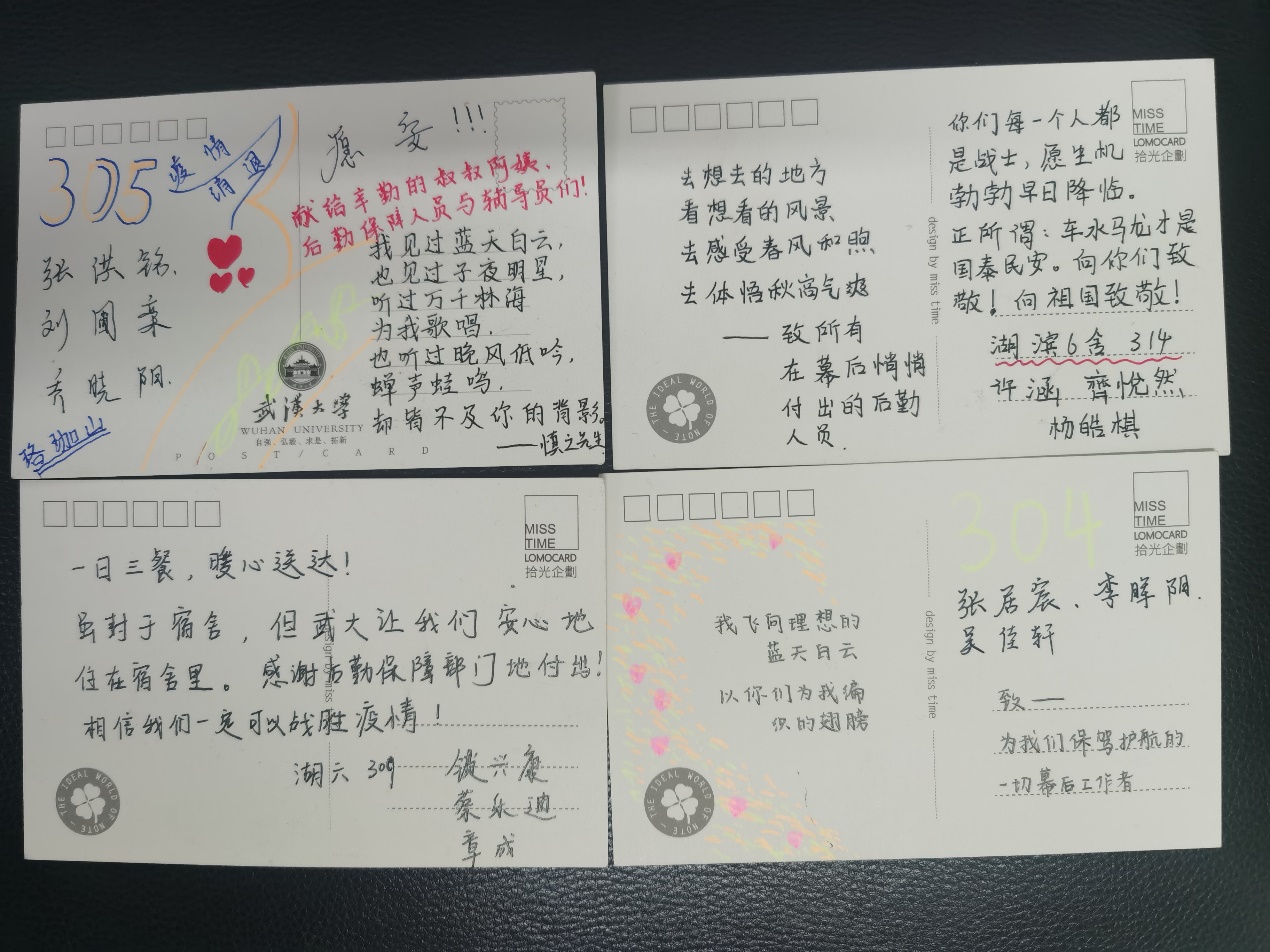 305
疫情
消退
张洪铭.
刘圃
齐晓阴.
珞珈山
愿安!!!
献给辛勤的叔叔阿姨、
后勤保障人员与辅导员们!
我见过蓝天白云,
也见过子夜明星,
听过万千林海
为我歌唱,
也听过晚风低吟,
蝉声蛙鸣,
却皆不及你的背影。
——慎之先生
武漢大學
WUHAN UNIVERSITY
自强、弘毅、求是、拓新
POST/CARD
去想去的地方
看想看的风景
去感受春风和煦
去体悟秋高气爽
——致所有
在幕后悄悄
付出的后勤
人员.
THE IDEAL WORLD OF NOTE
design by miss time
MISS
TIME
LOMOCARD
拾光企劃
你们每一个人都
是战士,愿生机
勃勃早日降临。
正所谓:车水马龙才是
国泰民安。向你们致
敬!向祖国致敬!
湖滨6舍 314
许涵 齊悦然
杨皓棋
MISS
TIME
LOMOCARD
拾光企劃
一日三餐,暖心送达!
虽封于宿舍,但武大让我们安心地
住在宿舍里。感谢后勤保障部门地付出!
相信我们一定可以战胜疫情!
design by miss
湖六 309
兴康
蔡乐迪
章成
THE IDEAL WORLD OF NOTE
我飞向理想的
蓝天白云
以你们为我编
织的翅膀
THE IDEAL WORLD OF NOTE
design by miss time
304
MISS
TIME
LOMOCARD
拾光企劃
张居宸、李晖阴.
吴佳轩
致——
为我们保驾护航的
一切幕后工作者